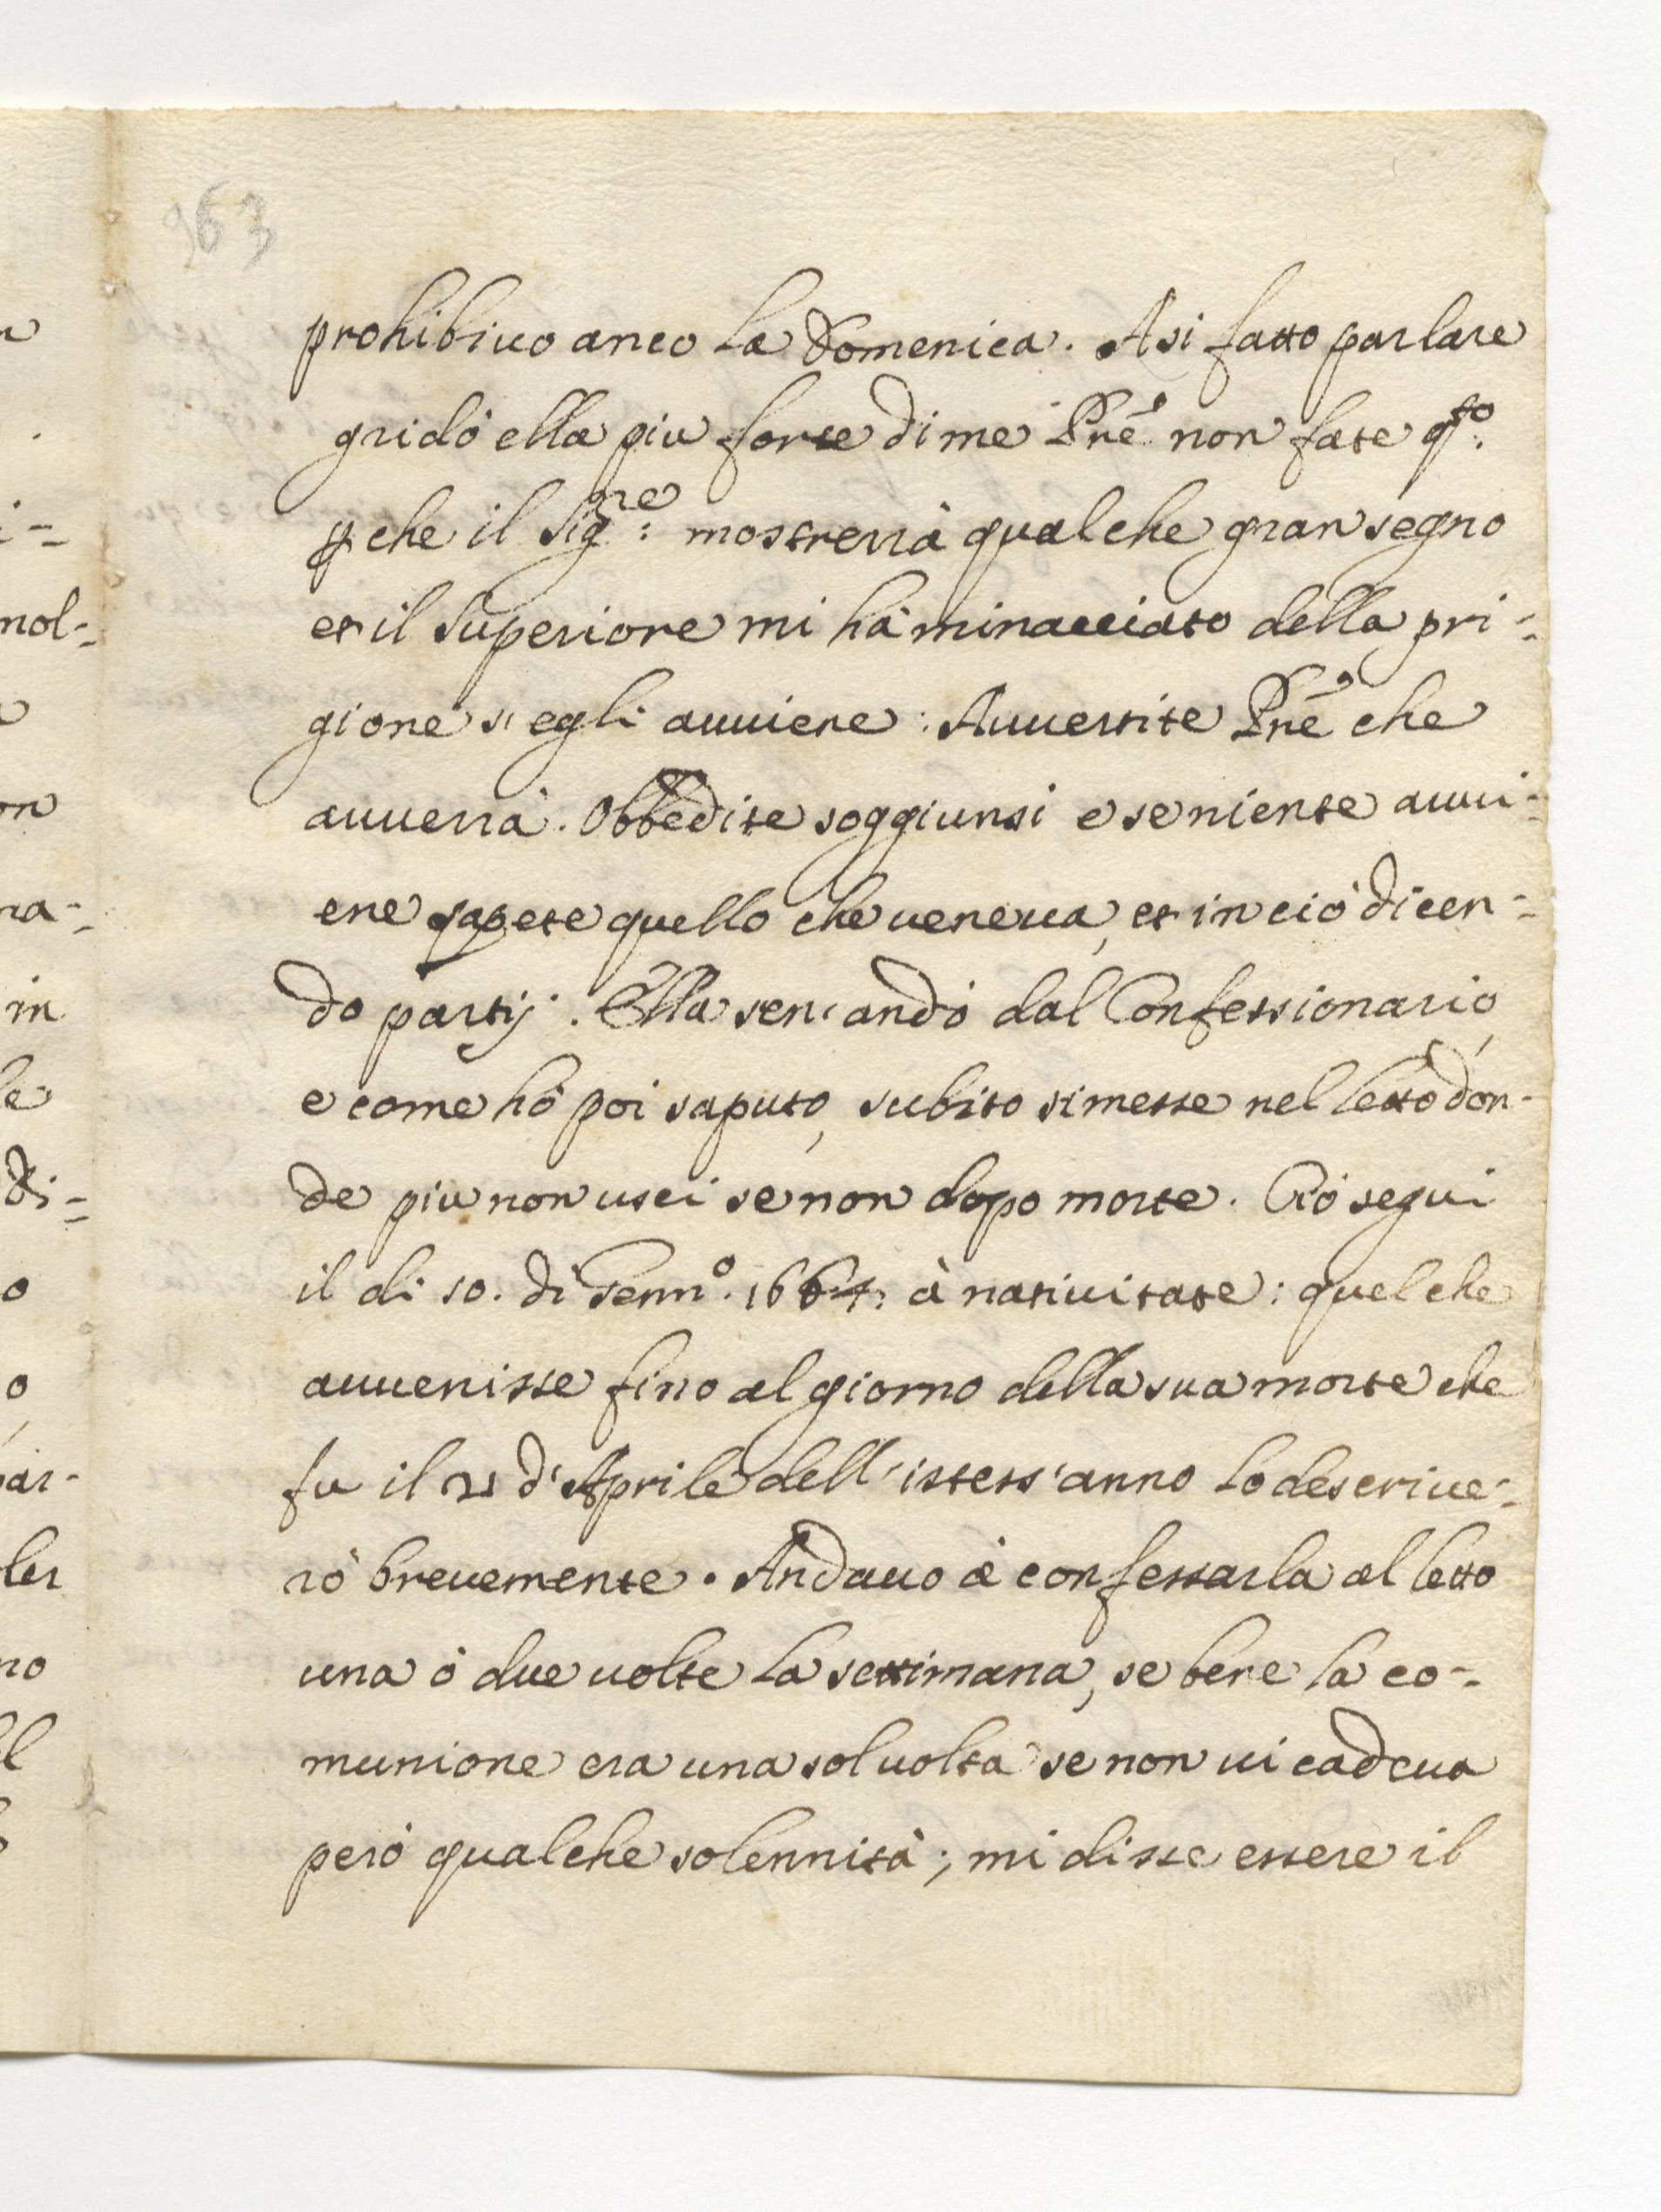 963
prohibiuo anco la Domenica. A si fatto parlare
gridò ella più forte di me Pre non fate qsto.
p che il Sigre: mostrerrà qualche gran segno
et il Superiore mi hà minacciato della pri=
gione s'egli auuiene: Auuertite Pre che
auuerrà. Obbedite soggiunsi e se niente auui=
ene sapete quello che uene ua, et in ciò dicen=
do partij. Ella sen'andò dal Confessionario,
e come hò poi saputo, subito si messe nel letto don-
de più non uscì se non dopo morte. Ciò seguì
il dì 10. di Genno. 1664: à natiuitate: quel che
auuenisse fino al giorno della sua morte che
fu il 21 d'Aprile dell'istess'anno lo descriue=
rò breuemente. Andauo à confessarla al letto
una ò due uolte la settimana, se bene la co=
munione era una sol uolta se non ui cadeua
però qualche solennità; mi disse essere il